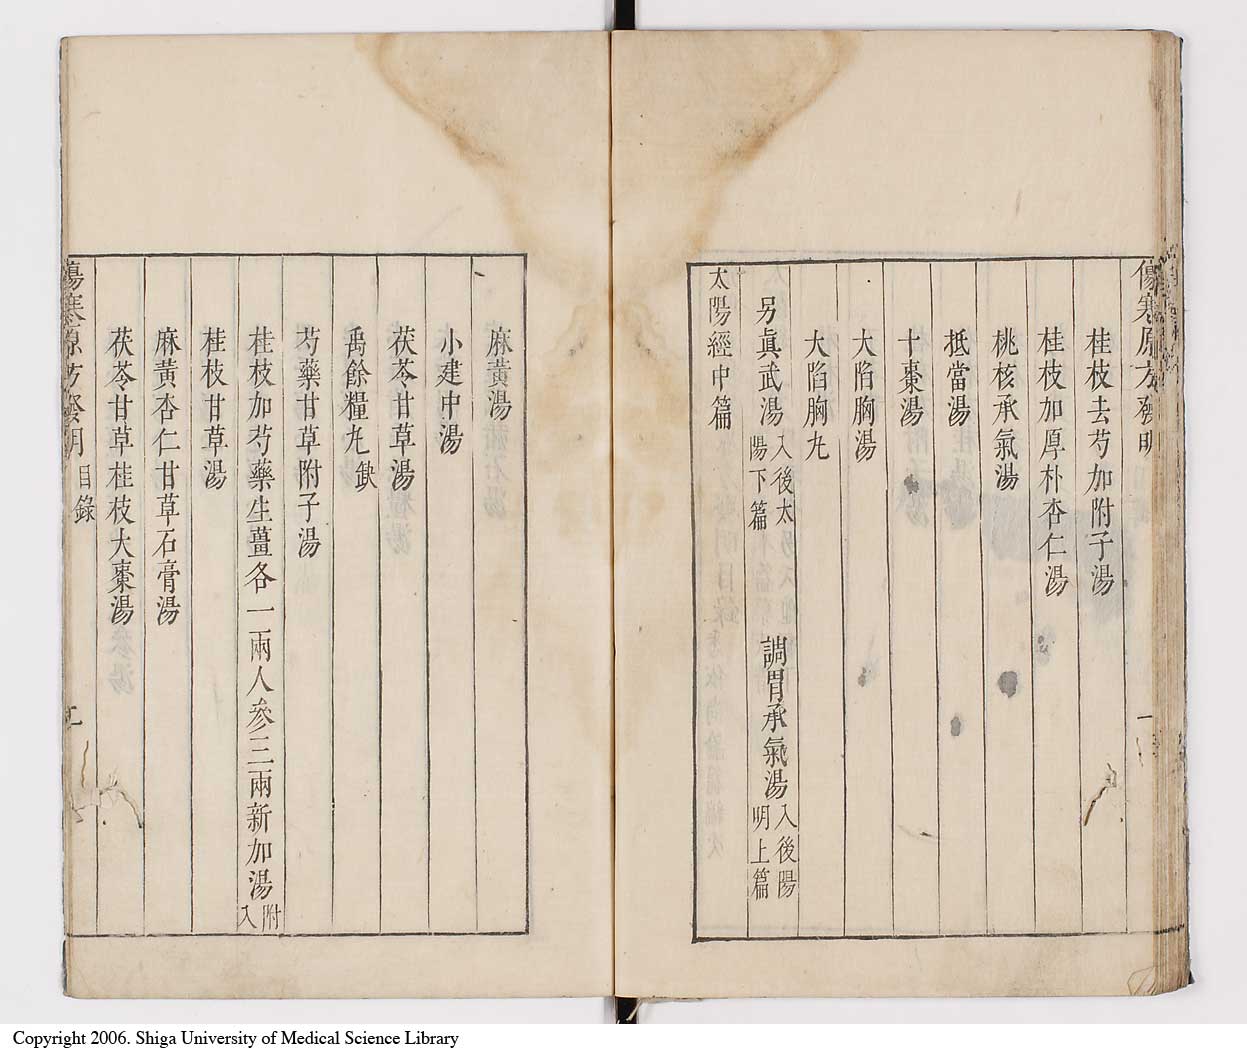 傷寒原方發明
桂枝去芍加附子湯
桂枝加厚朴杏仁湯
桃核承氣湯
抵當湯
十棗湯
大陷胸湯
大陷胸丸
另眞武湯入後太陽下篇 調胃承氣湯入後陽明上篇
太陽經中篇
麻黄湯
小建中湯
茯苓甘草湯
禹餘糧丸缺
芍藥甘草附子湯
桂枝加芍藥生薑各一兩人參三兩新加湯附入
桂枝甘草湯
麻黄杏仁甘草石膏湯
茯苓甘草桂枝大棗湯
傷寒原方發明 目錄
Copyright 2006. Shiga University of Medical Science Library